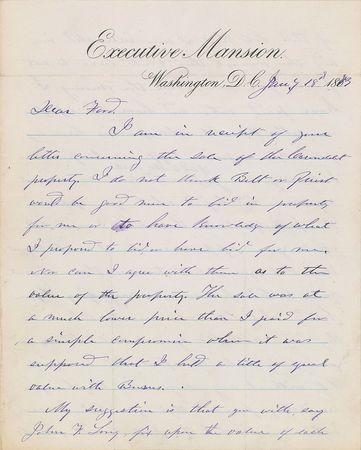 Executive Mansion.
Washington, D.C. Jany 18th 1873
Dear Ford,
I am in receipt of your
letter concerning the sale of the Carondelet
property. I do not think Belt or Priest
would be good men to bid in property
for me or to have knowledge of what
I propose to bid, or have bid for me,
nor can I agree with them as to the
value of the property. The sale was at
a much lower price than I paid for
a simple compromise when it was
supposed that I held a title of equal
value with
My suggestion is that you with, say
John F. Long, fix upon the value of each